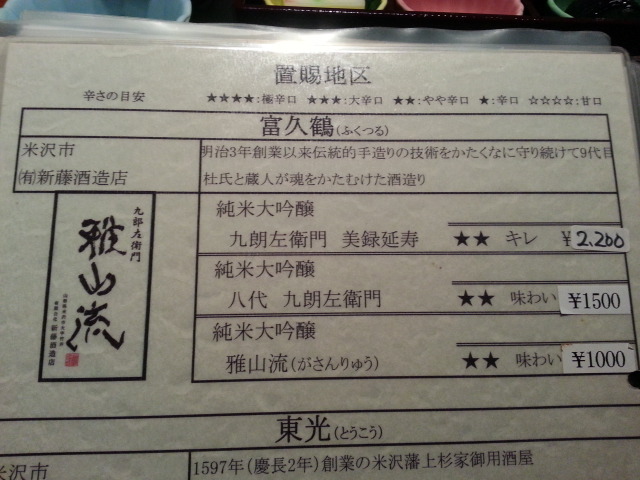 置賜地区
辛さの目安 ★★★★:極辛口 ★★★:大辛口 ★★:やや辛口 ★:辛口 ☆☆☆☆:甘口
富久鶴(ふくつる)
米沢市
㈲新藤酒造店
明治3年創業以来伝統的手造りの技術をかたくなに守り続けて9代目
杜氏と蔵人が魂をかたむけた酒造り
九郎左衛門
雅山流
新藤酒造店
純米大吟醸
九朗左衛門 美録延寿 ★★ キレ ¥2,200
純米大吟醸
八代 九朗左衛門 ★★ 味わい ¥1500
純米大吟醸
雅山流(がさんりゅう) ★★ 味わい ¥1000
東光(とうこう)
米沢市
1597年(慶長2年)創業の米沢藩上杉家御用酒屋